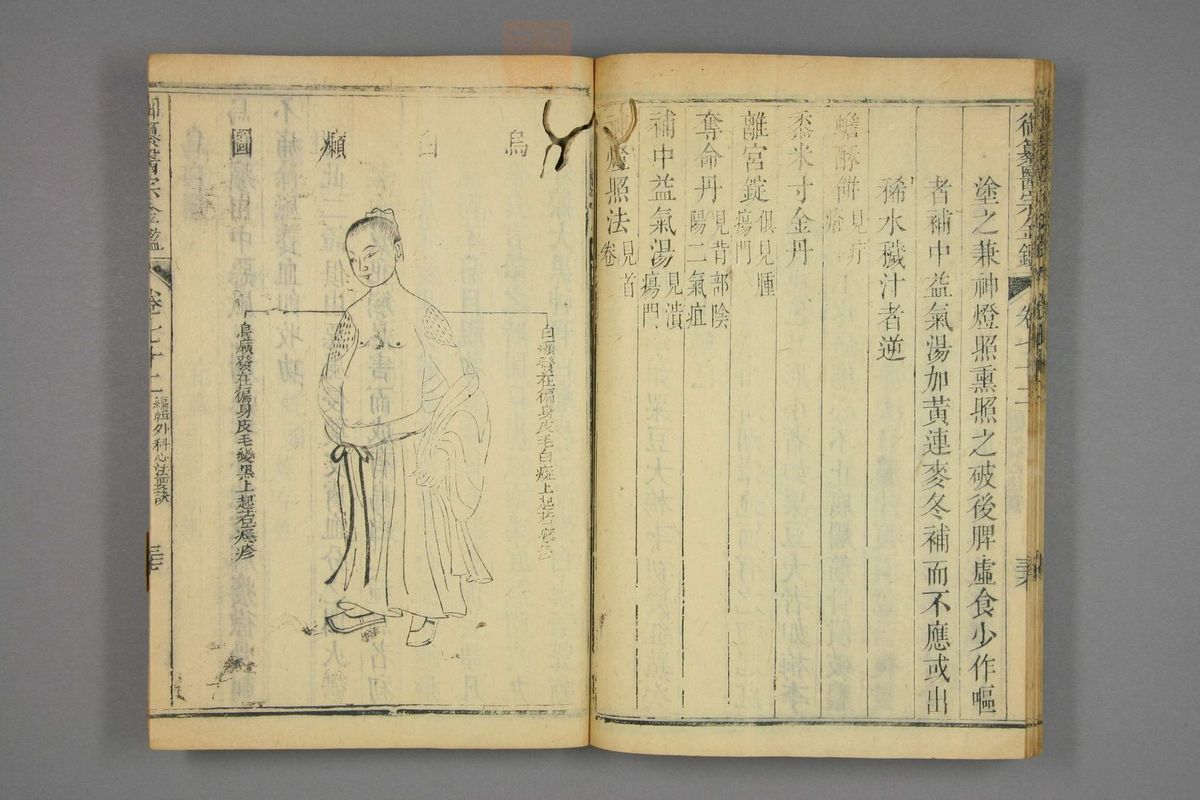 御纂醫宗金鑑 卷七十二
塗之兼神燈照熏照之破後脾虛食少作嘔
者補中益氣湯加黃連麥冬補而不應或出
稀水穢汁者逆
蟾酥餅 見疔瘡
黍米寸金丹
離宮錠 俱見腫瘍門
奪命丹 見背部陰陽二氣疽
補中益氣湯 見潰瘍門
神燈照法 見首卷
烏白癩圖
白癩發在徧身皮毛白斑上起
烏癩發在徧身皮毛變黑上起
醫宗金鑑 卷七十二 編輯外科心法要訣